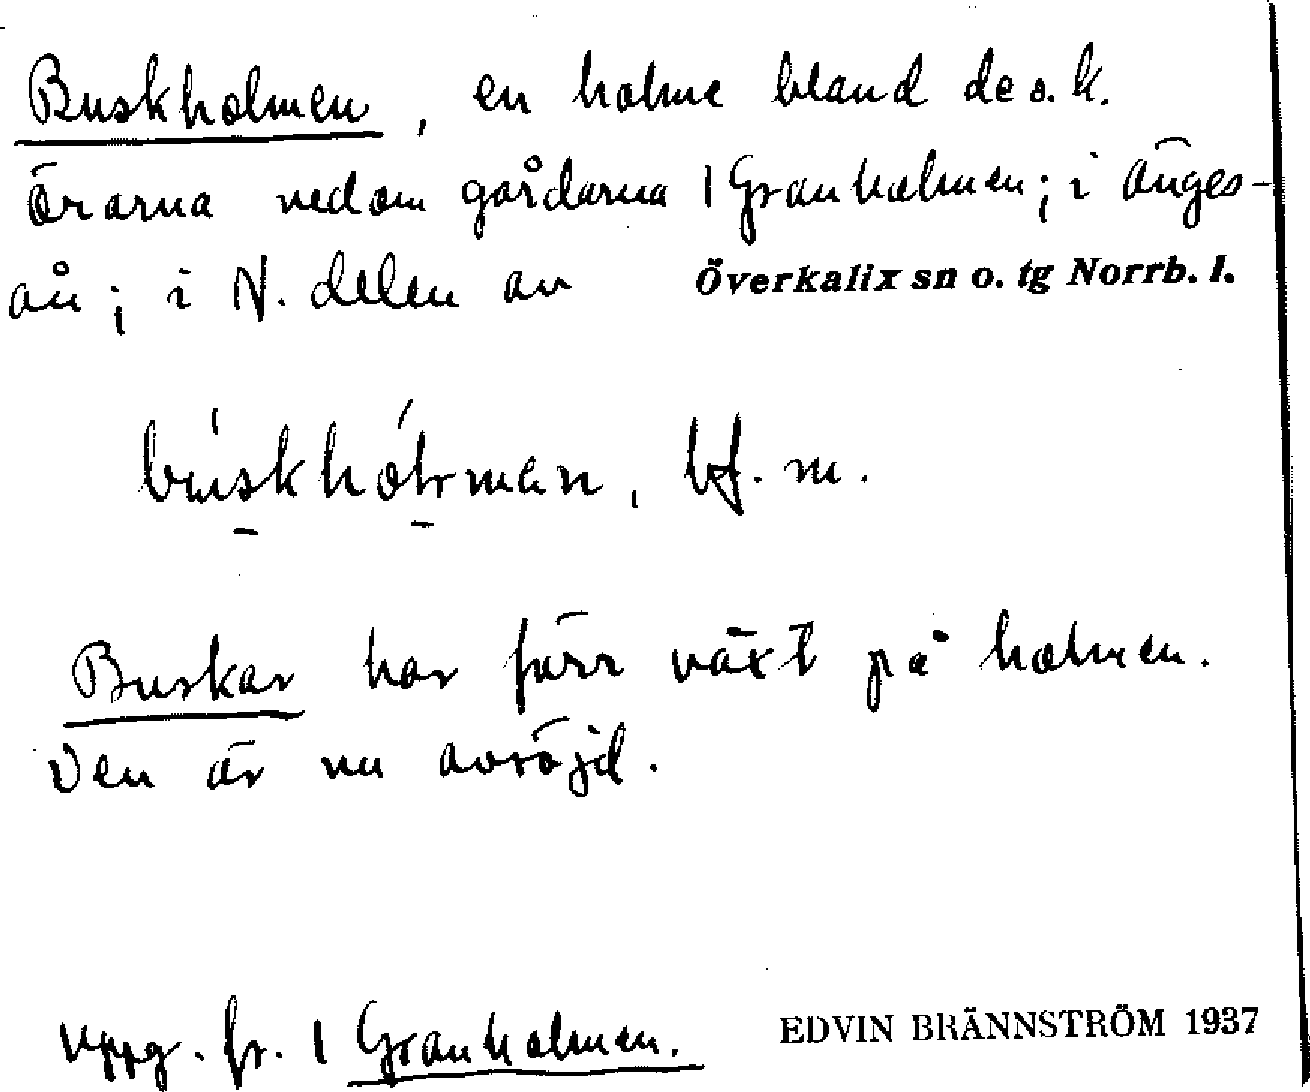 Buskholmen, en holme bland de s.k.
örarna nedom gårdarna 1 Granholmen; i Änges-
ån; i N. delen av Överkalix sn o. tg Norrb. l.
bf. m.
Buskar har förr växt på holmen.
Den är nu avröjd.
Uppg. fr. 1 Granholmen.
EDVIN BRÄNNSTRÖM 1937